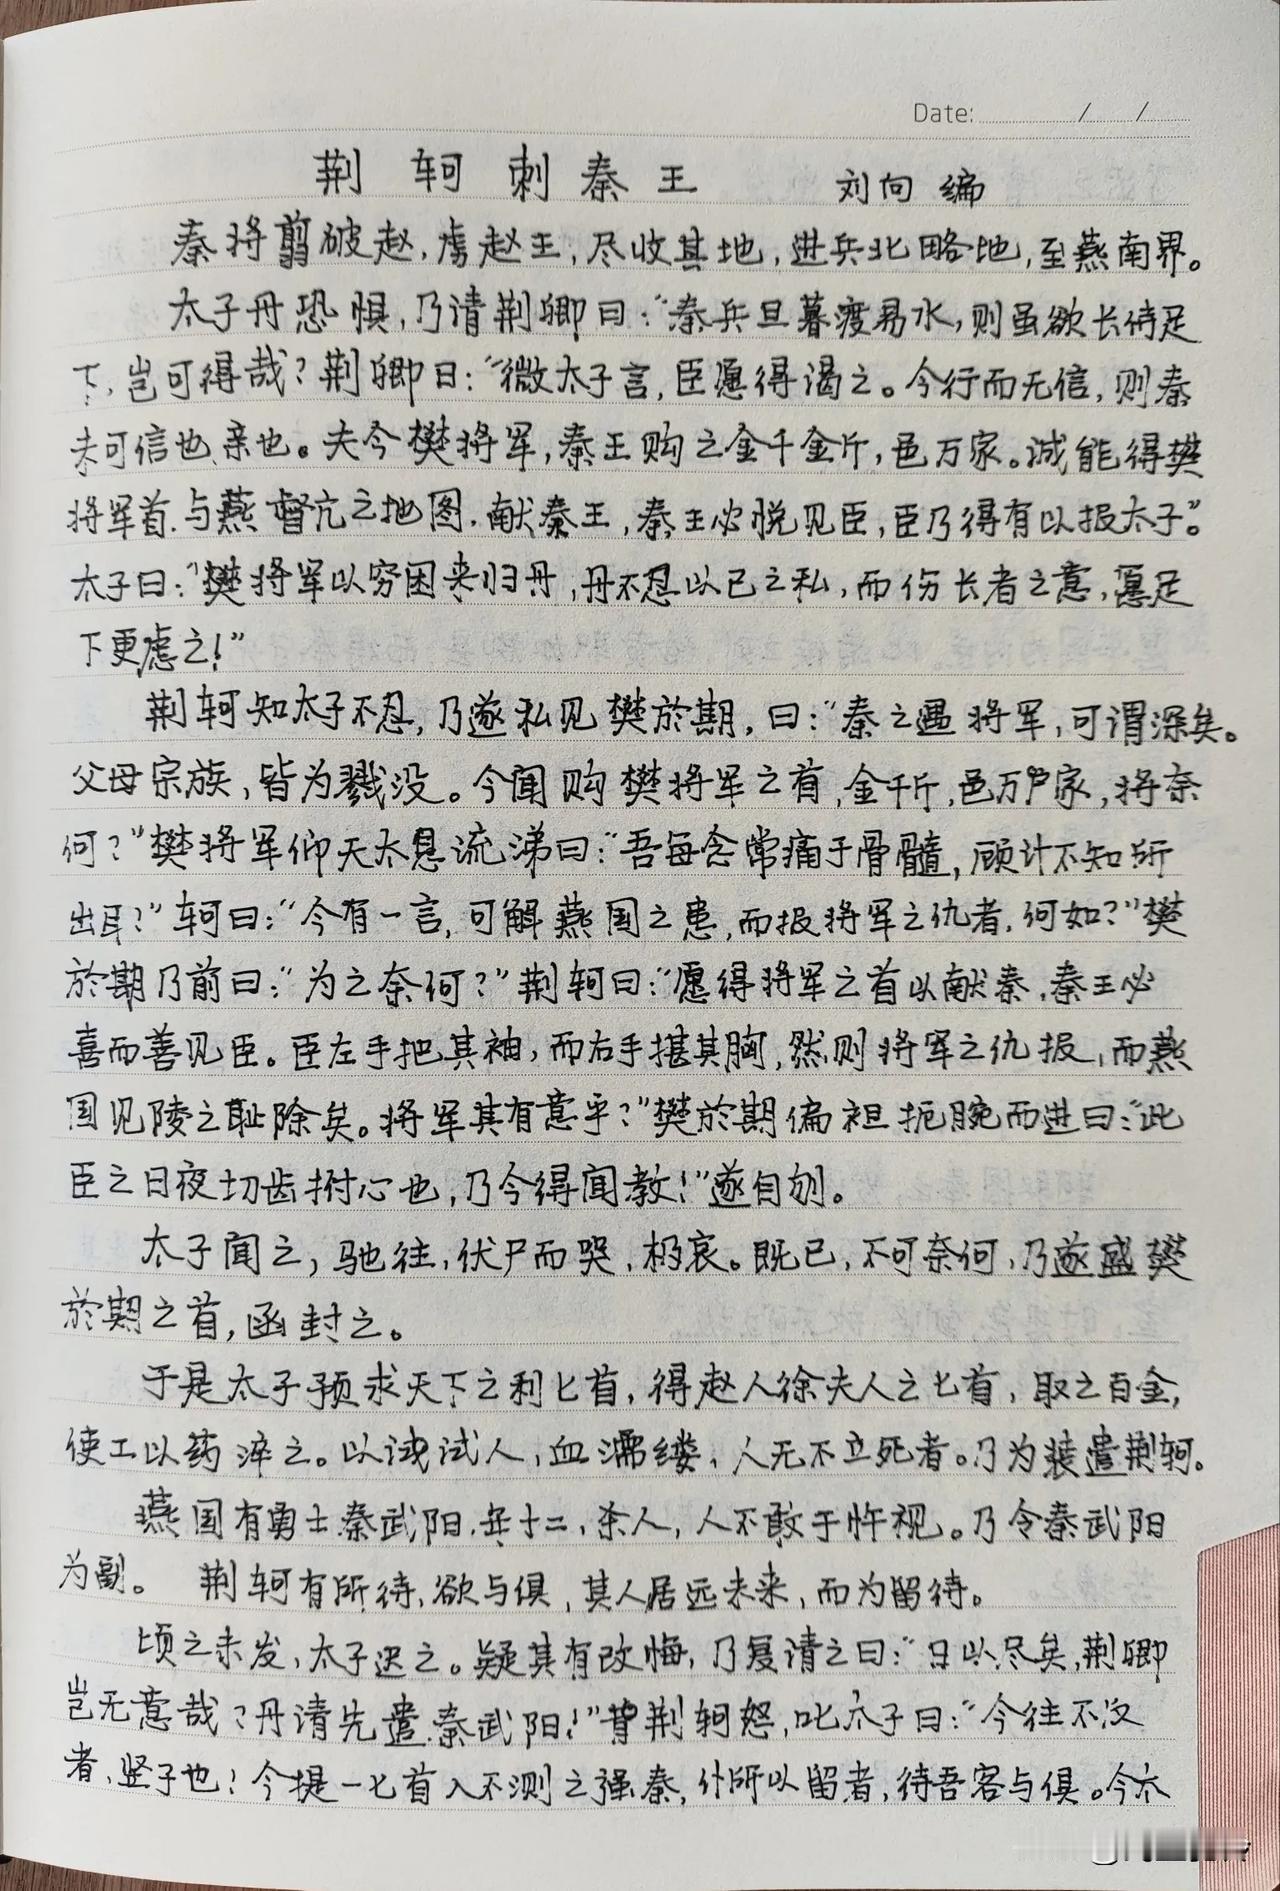 Date: / /
荆轲刺秦王 刘向 编
秦将翦破赵,虏赵王,尽收其地,进兵北略地,至燕南界。
太子丹恐惧,乃请荆卿曰:“秦兵旦暮渡易水,则虽欲长侍足
下,岂可得哉?荆卿曰:“微太子言,臣愿得谒之。今行而无信,则秦
未可信也、亲也。夫今樊将军,秦王购之金千金斤,邑万家。诚能得樊
将军首、与燕督亢之地图,献秦王,秦王必悦见臣,臣乃得有以报太子”。
太子曰:“樊将军以穷困来归丹,丹不忍以己之私,而伤长者之意,愿足
下更虑之!”
荆轲知太子不忍,乃遂私见樊於期,曰:“秦之遇将军,可谓深矣。
父母宗族,皆为戮没。今闻购樊将军之首,金千斤,邑万户家,将奈
何?”樊将军仰天太息流涕曰:“吾每念常痛于骨髓,顾计不知所
出耳?”轲曰:“今有一言,可解燕国之患,而报将军之仇者,何如?”樊
於期乃前曰:“为之奈何?”荆轲曰:“愿得将军之首以献秦,秦王必
喜而善见臣。臣左手把其袖,而右手揕其胸,然则将军之仇报,而燕
国见陵之耻除矣。将军其有意乎?”樊於期偏袒扼腕而进曰:“此
臣之日夜切齿拊心也,乃今得闻教!”遂自刎。
太子闻之,驰往,伏尸而哭,极哀。既已,不可奈何,乃遂盛樊
於期之首,函封之。
于是太子预求天下之利匕首,得赵人徐夫人之匕首,取之百金,
使工以药淬之。以试人,血濡缕,人无不立死者。乃为装遣荆轲。
燕国有勇士秦武阳,年十二,杀人,人不敢于忤视。乃令秦武阳
为副。 荆轲有所待,欲与俱,其人居远未来,而为留待。
顷之未发,太子迟之。疑其有改悔,乃复请之曰:“日以尽矣,荆卿
岂无意哉?丹请先遣秦武阳!”荆轲怒,叱太子曰:“今往不反
者,竖子也!今提一匕首入不测之强秦,仆所以留者,待吾客与俱。今太